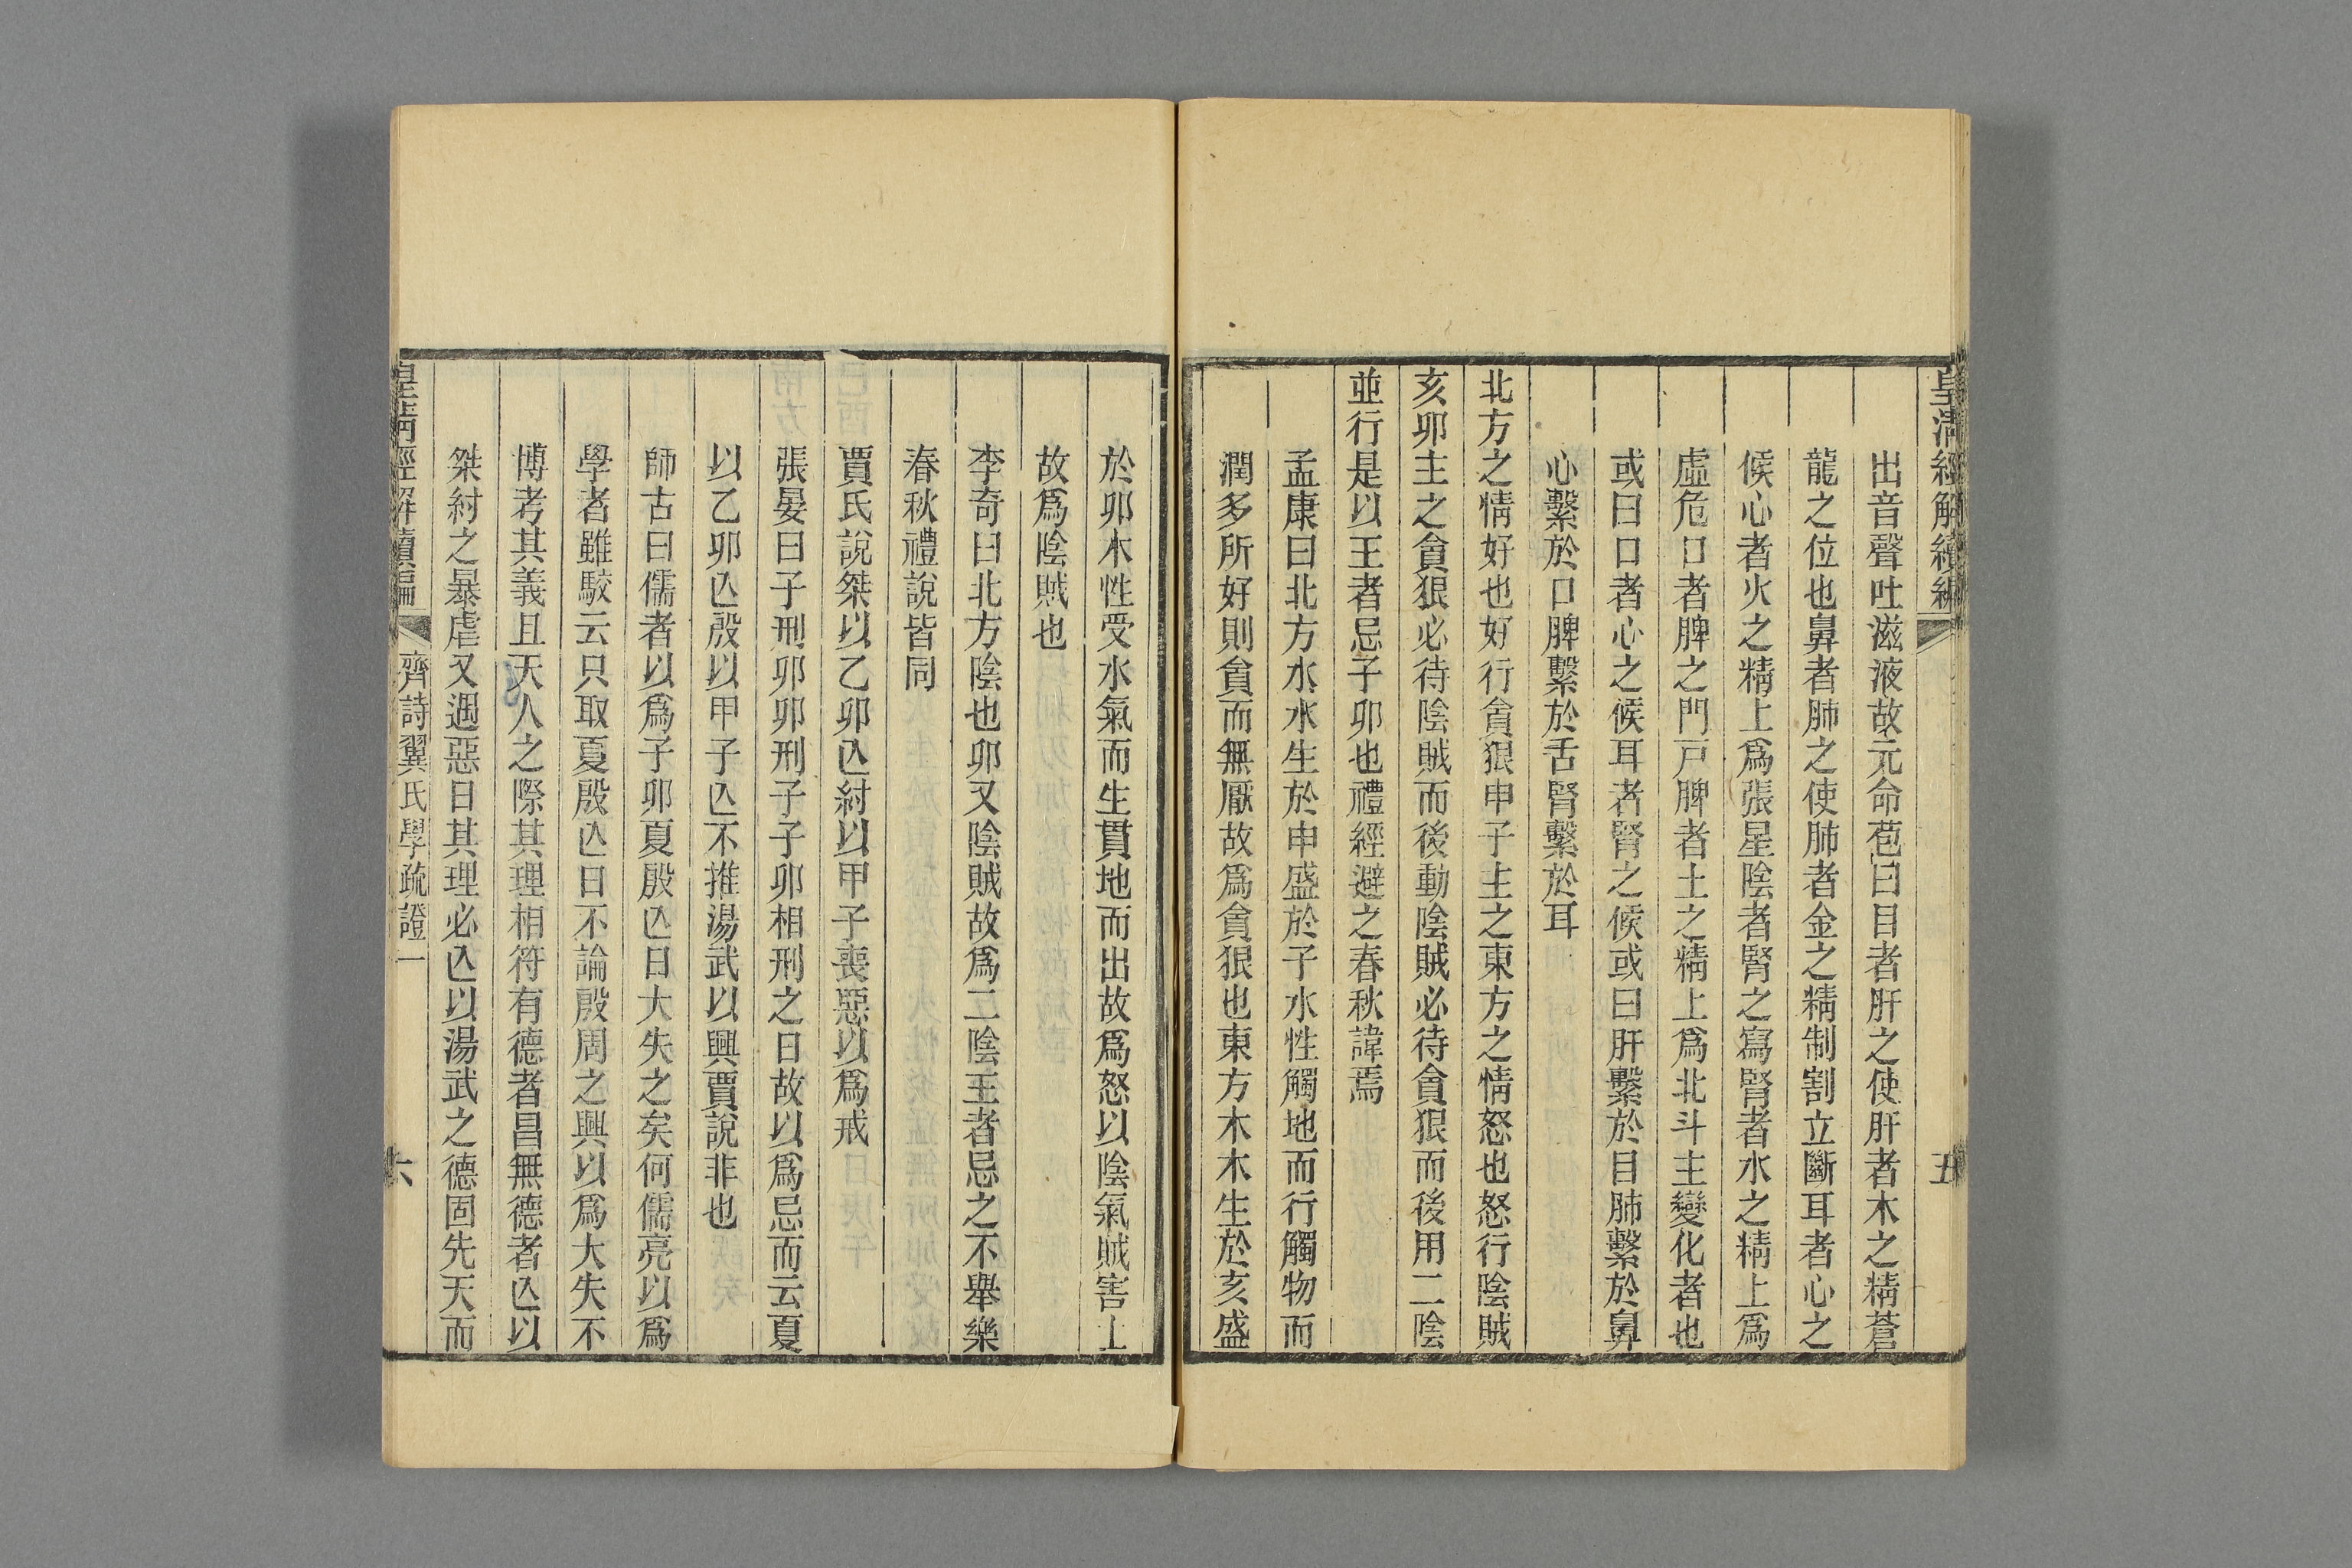 皇清經解續編
五
出音聲吐滋液故元命苞曰目者肝之使肝者木之精蒼
龍之位也鼻者肺之使肺者金之精制割立斷耳者心之
候心者火之精上爲張星陰者腎之寫腎者水之精上爲
虛危口者脾之門戸脾者土之精上爲北斗主變化者也
或曰口者心之候耳者腎之候或曰肝繫於目肺繫於鼻
心繫於口脾繫於舌腎繫於耳
北方之情好也好行貪狠申子主之東方之情怒也怒行陰賊
亥卯主之貪狠必待陰賊而後動陰賊必待貪狠而後用二陰
並行是以王者忌子卯也禮經避之春秋諱焉
孟康曰北方水水生於申盛於子水性觸地而行觸物而
潤多所好則貪而無厭故爲貪狠也東方木木生於亥盛
於卯木性受水氣而生貫地而出故爲怒以陰氣賊害土
故爲陰賊也
李奇曰北方陰也卯又陰賊故爲二陰王者忌之不舉樂
春秋禮說皆同
賈氏說桀以乙卯亾紂以甲子喪惡以爲戒
張晏曰子刑卯卯刑子子卯相刑之日故以爲忌而云夏
以乙卯亾殷以甲子亾不推湯武以興賈說非也
師古曰儒者以爲子卯夏殷亾日大失之矣何儒亮以爲
學者雖駮云只取夏殷亾日不論殷周之興以爲大失不
博考其義且天人之際其理相符有德者昌無德者亾以
桀紂之暴虐又遇惡日其理必亾以湯武之德固先天而
皇清經解續編
齊詩翼氏學疏證一
六